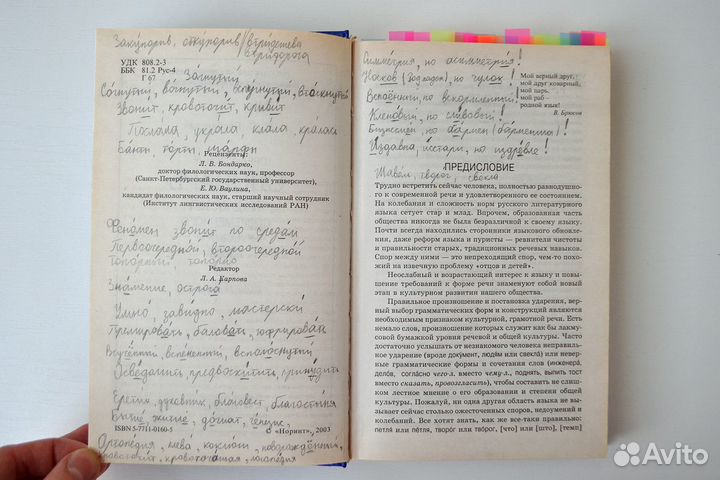 Закупорив, откупорив/
УДК 808.2-3
ББК 81.2 Рус-4
Г 67
Загнутый
Согнутый, вогнутый,
Звонит, кровоточит, кривит
Послала, украла, клала, кралась
Банты, торты, шарфы
Рецензенты:
Л. В. Бондарко,
доктор филологических наук, профессор
(Санкт-Петербургский государственный университет),
Е. Ю. Ваулина,
кандидат филологических наук, старший научный сотрудник
(Институт лингвистических исследований РАН)
Феномен звонит по средам
Первоочередной, второочередной
топорный, топорно
Редактор
Л. А. Карпова
Знамение, острога
Умно, завидно, мастерски
Премировать, баловать,
Осведомить, предвосхитить, принудить
Еретик, духовник, благовест, благостыня
житие, догмат,
ISBN 5-7711-0160-5
© «Норинт», 2003
Ортопедия,
кровоточит, кровоточащая, логопедия
Симметрия, но асимметрия!
Носков (подходов), но чулок!
но вскормленный!
Кленовый, но сливовый!
но бармен (бармены)!
Издавна, исстари, но издревле!
Мой верный друг,
мой друг коварный,
мой царь,
мой раб –
родной язык!
В. Брюсов
Щавель, творог, свекла
ПРЕДИСЛОВИЕ
Трудно встретить сейчас человека, полностью равнодушного
к современной речи и удовлетворенного ее состоянием.
На колебания и сложность норм русского литературного
языка сетует стар и млад. Впрочем, образованная часть
общества никогда не была безразличной к своему языку.
Почти всегда находились сторонники языкового обновления,
даже реформ языка и пуристы — ревнители чистоты
и правильности старых, традиционных речевых навыков.
Спор между ними — это непреходящий спор, чем-то похожий
на извечную проблему «отцов и детей».
Неослабный и возрастающий интерес к языку и повышение
требований к форме речи знаменует собой новый
этап в культурном развитии нашего общества.
Правильное произношение и постановка ударения, верный
выбор грамматических форм и конструкций являются
необходимым признаком культурной, грамотной речи. Есть
немало слов, произношение которых служит как бы лакмусовой
бумажкой уровня речевой и общей культуры. Часто
достаточно услышать от незнакомого человека неправильное
ударение (вроде документ, людям или свекла) или неверные
грамматические формы и сочетания слов (инженера,
делов, согласно чего-л. вместо чему-л., поднять, выпить тост
вместо сказать, провозгласить), чтобы составить не слишком
лестное мнение о его образовании и степени общей
культуры. Пожалуй, ни одна другая область языка не вызывает
сейчас столько ожесточенных споров, недоумений и
колебаний. Все хотят знать, как же все-таки правильно:
петля или пéтля, творóг или твóрог, [что] или [што], [темп]
Avito